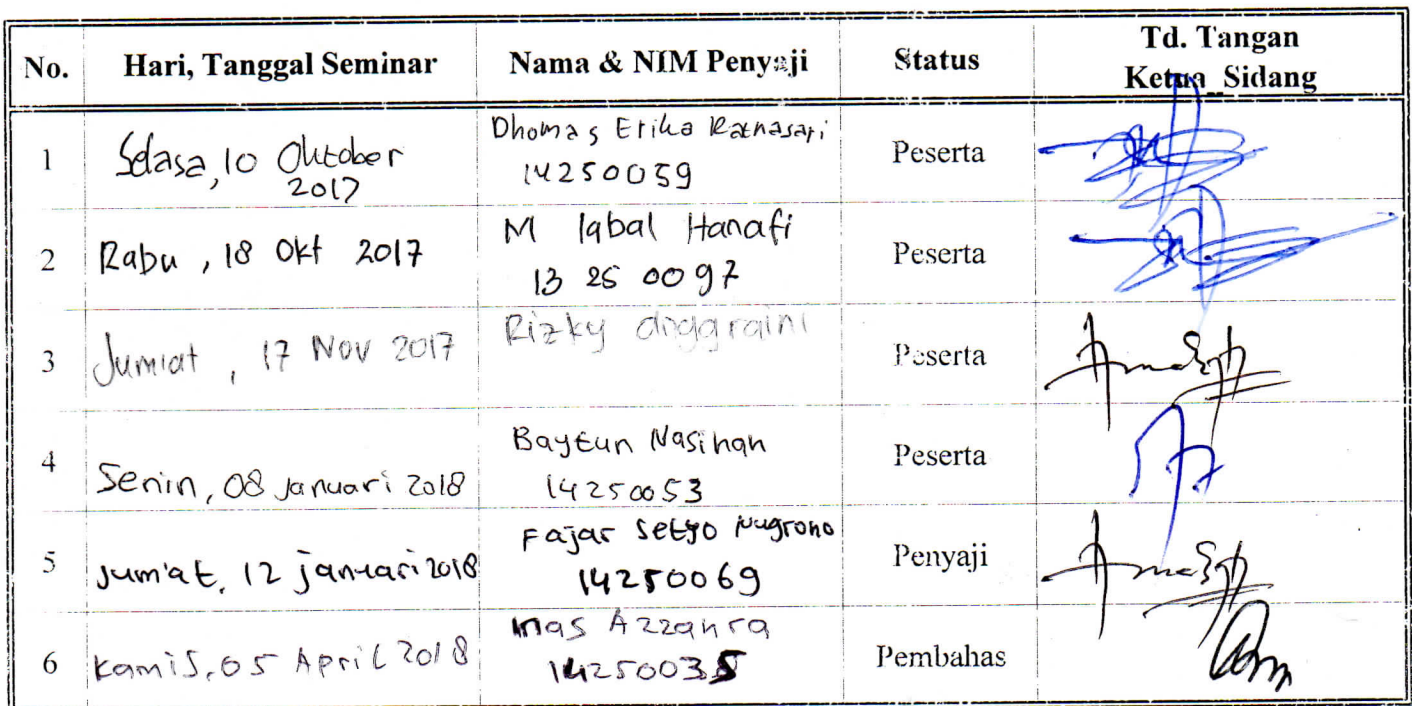 No. Hari, Tanggal Seminar Nama & NIM Penyaji Status Td. Tangan
Ketua Sidang
1 Selasa, 10 Oktober
2017 Dhomas Erika Ratnasari
14250059 Peserta
2 Rabu, 18 Okt 2017 M Iqbal Hanafi
13 25 0097 Peserta
3 Jumiat, 17 Nov 2017 Rizky Peserta
4 Senin, 08 Januari 2018 Baytun Nasihah
14250053 Peserta
5 Jum'at, 12 januari 2018 Fajar Setyo Nugroho
14250069 Penyaji
6 Kamis, 05 April 2018 Inas Azzahra
14250035 Pembahas